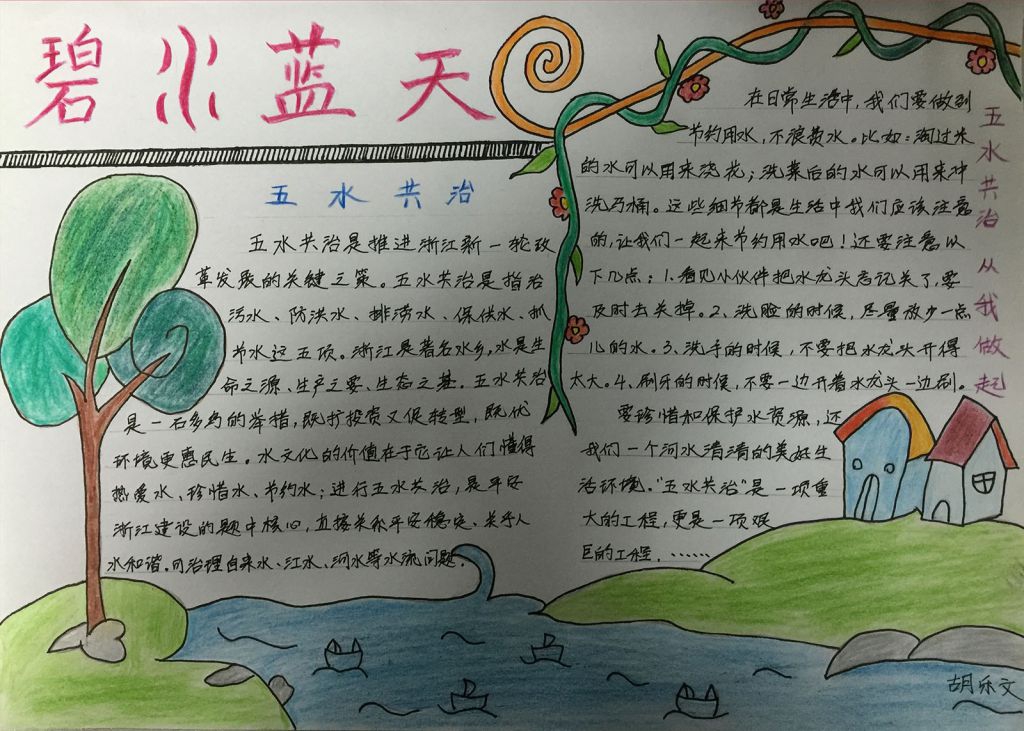 碧水蓝天
五水共治
五水共治是推进浙江新一轮改
革发展的关键之策。五水共治是指治
污水、防洪水、排涝水、保供水、抓
节水这五项。浙江是著名水乡,水是生
命之源、生产之要、生态之基。五水共治
是一石多鸟的举措,既扩投资又促转型,既优
环境更惠民生。水文化的价值在于它让人们懂得
热爱水、珍惜水、节约水;进行五水共治,是平安
浙江建设的题中核心,直接关系平安稳定、关乎人
水和谐。可治理自来水、江水、河水等水流问题。
在日常生活中,我们要做到
节约用水,不浪费水。比如:淘过米
的水可以用来浇花;洗菜后的水可以用来冲
洗马桶。这些细节都是生活中我们应该注意
的,让我们一起来节约用水吧!还要注意以
下几点:1、看见小伙伴把水龙头忘记关了,要
及时去关掉。2、洗脸的时候,尽量放少一点
儿的水。3、洗手的时候,不要把水龙头开得
太大。4、刷牙的时候,不要一边开着水龙头一边刷。
要珍惜和保护水资源,还
我们一个河水清清的美好生
活环境。"五水共治"是一项重
大的工程,更是一项艰
巨的工程,……
五水共治从我做起
胡乐文